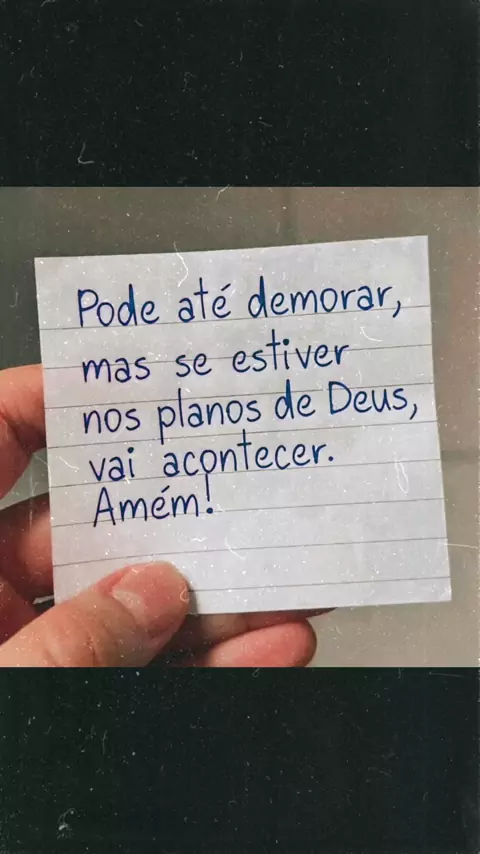 Pode até demorar,
mas se estiver
nos planos de Deus,
vai acontecer.
Amém!